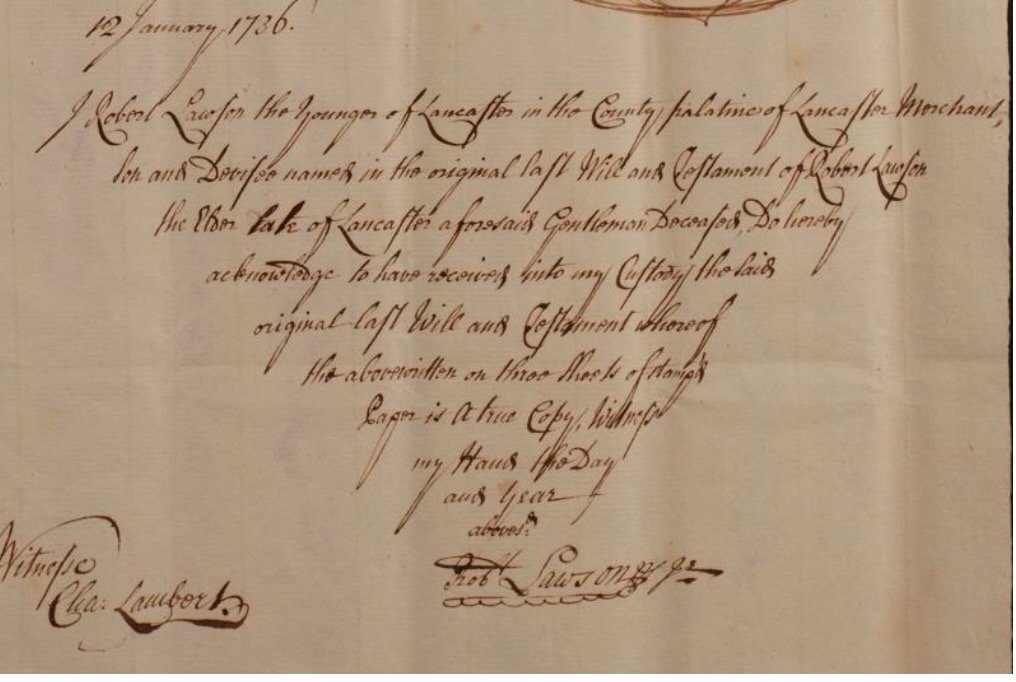 12 January 1736.
I Robert Lawson the Younger of Lancaster in the County palatine of Lancaster Merchant,
Son and Devisee named in the original last Will and Testament of Robert Lawson
the Elder late of Lancaster aforesaid Gentleman Deceased, Do hereby
acknowledge to have received into my Custody the said
original last Will and Testament whereof
the abovewritten on three sheets of stamp'd
Paper is A true Copy, Witness
my Hand the Day
and Year
aboves.d
Rob.t Lawson Jr
Witness
Cha: Lambert.